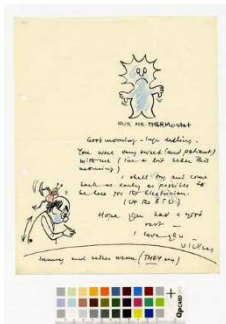 OUR MR. THERMOSTAT
Good morning - Inge darling -
You were very sweet (and patient)
with me (I'm a bit better this
morning)
I shall try and come
back as early as possible to
be here for the electrician.
Hope you had a good
rest -
I love you
Vickers
(THEY say)